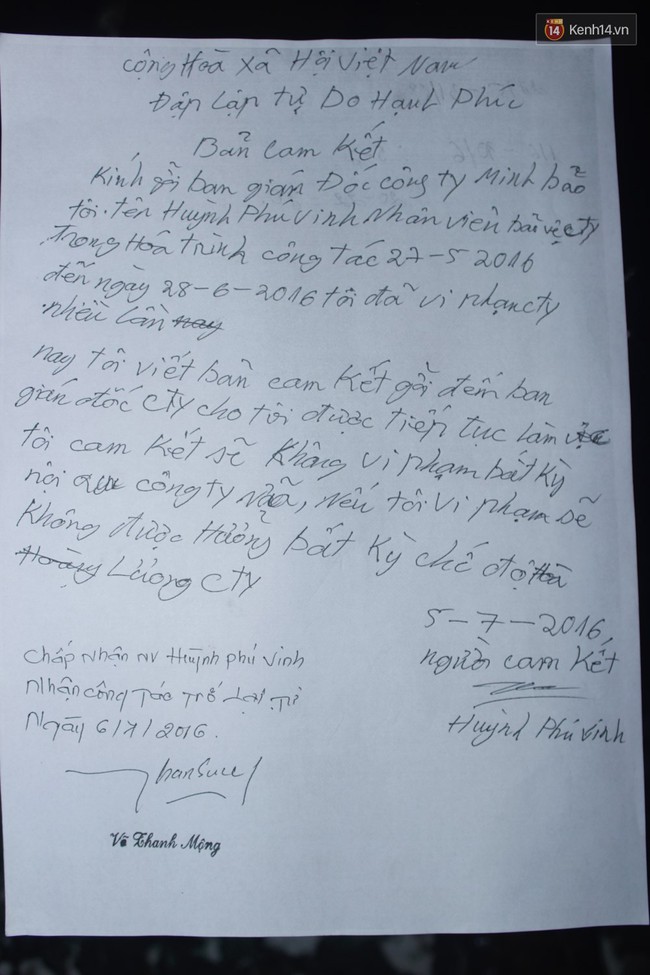 14 Kenh14.vn
Cộng Hoà Xã Hội Việt Nam
Đập Lập tự Do Hạnh Phíc
Bản Cam Kết
Kính gởi ban gián Đốc công ty Minh bảo
tôi tên Huỳnh Phú Vinh Nhân viên bảo vệ cty
Trong Hoá trình công tác 27-5 2016
đến ngày 28-6-2016 tôi đã vi phạm cty
nhiều lần nay
nay tôi viết bản cam kết gởi đến ban
gián đốc cty cho tôi được tiếp tục làm việc
tôi cam kết sẽ không vi phạm bất kỳ
nội quy công ty nữa, nếu tôi vi phạm sẽ
không được hưởng bất kỳ chế độ
Lương cty
5-7-2016,
người cam kết
Huỳnh Phú Vinh
Chấp Nhận NV Huỳnh Phú Vinh
Nhận công tác trở lại từ
Ngày 6/7/2016.
Võ Thanh Mộng